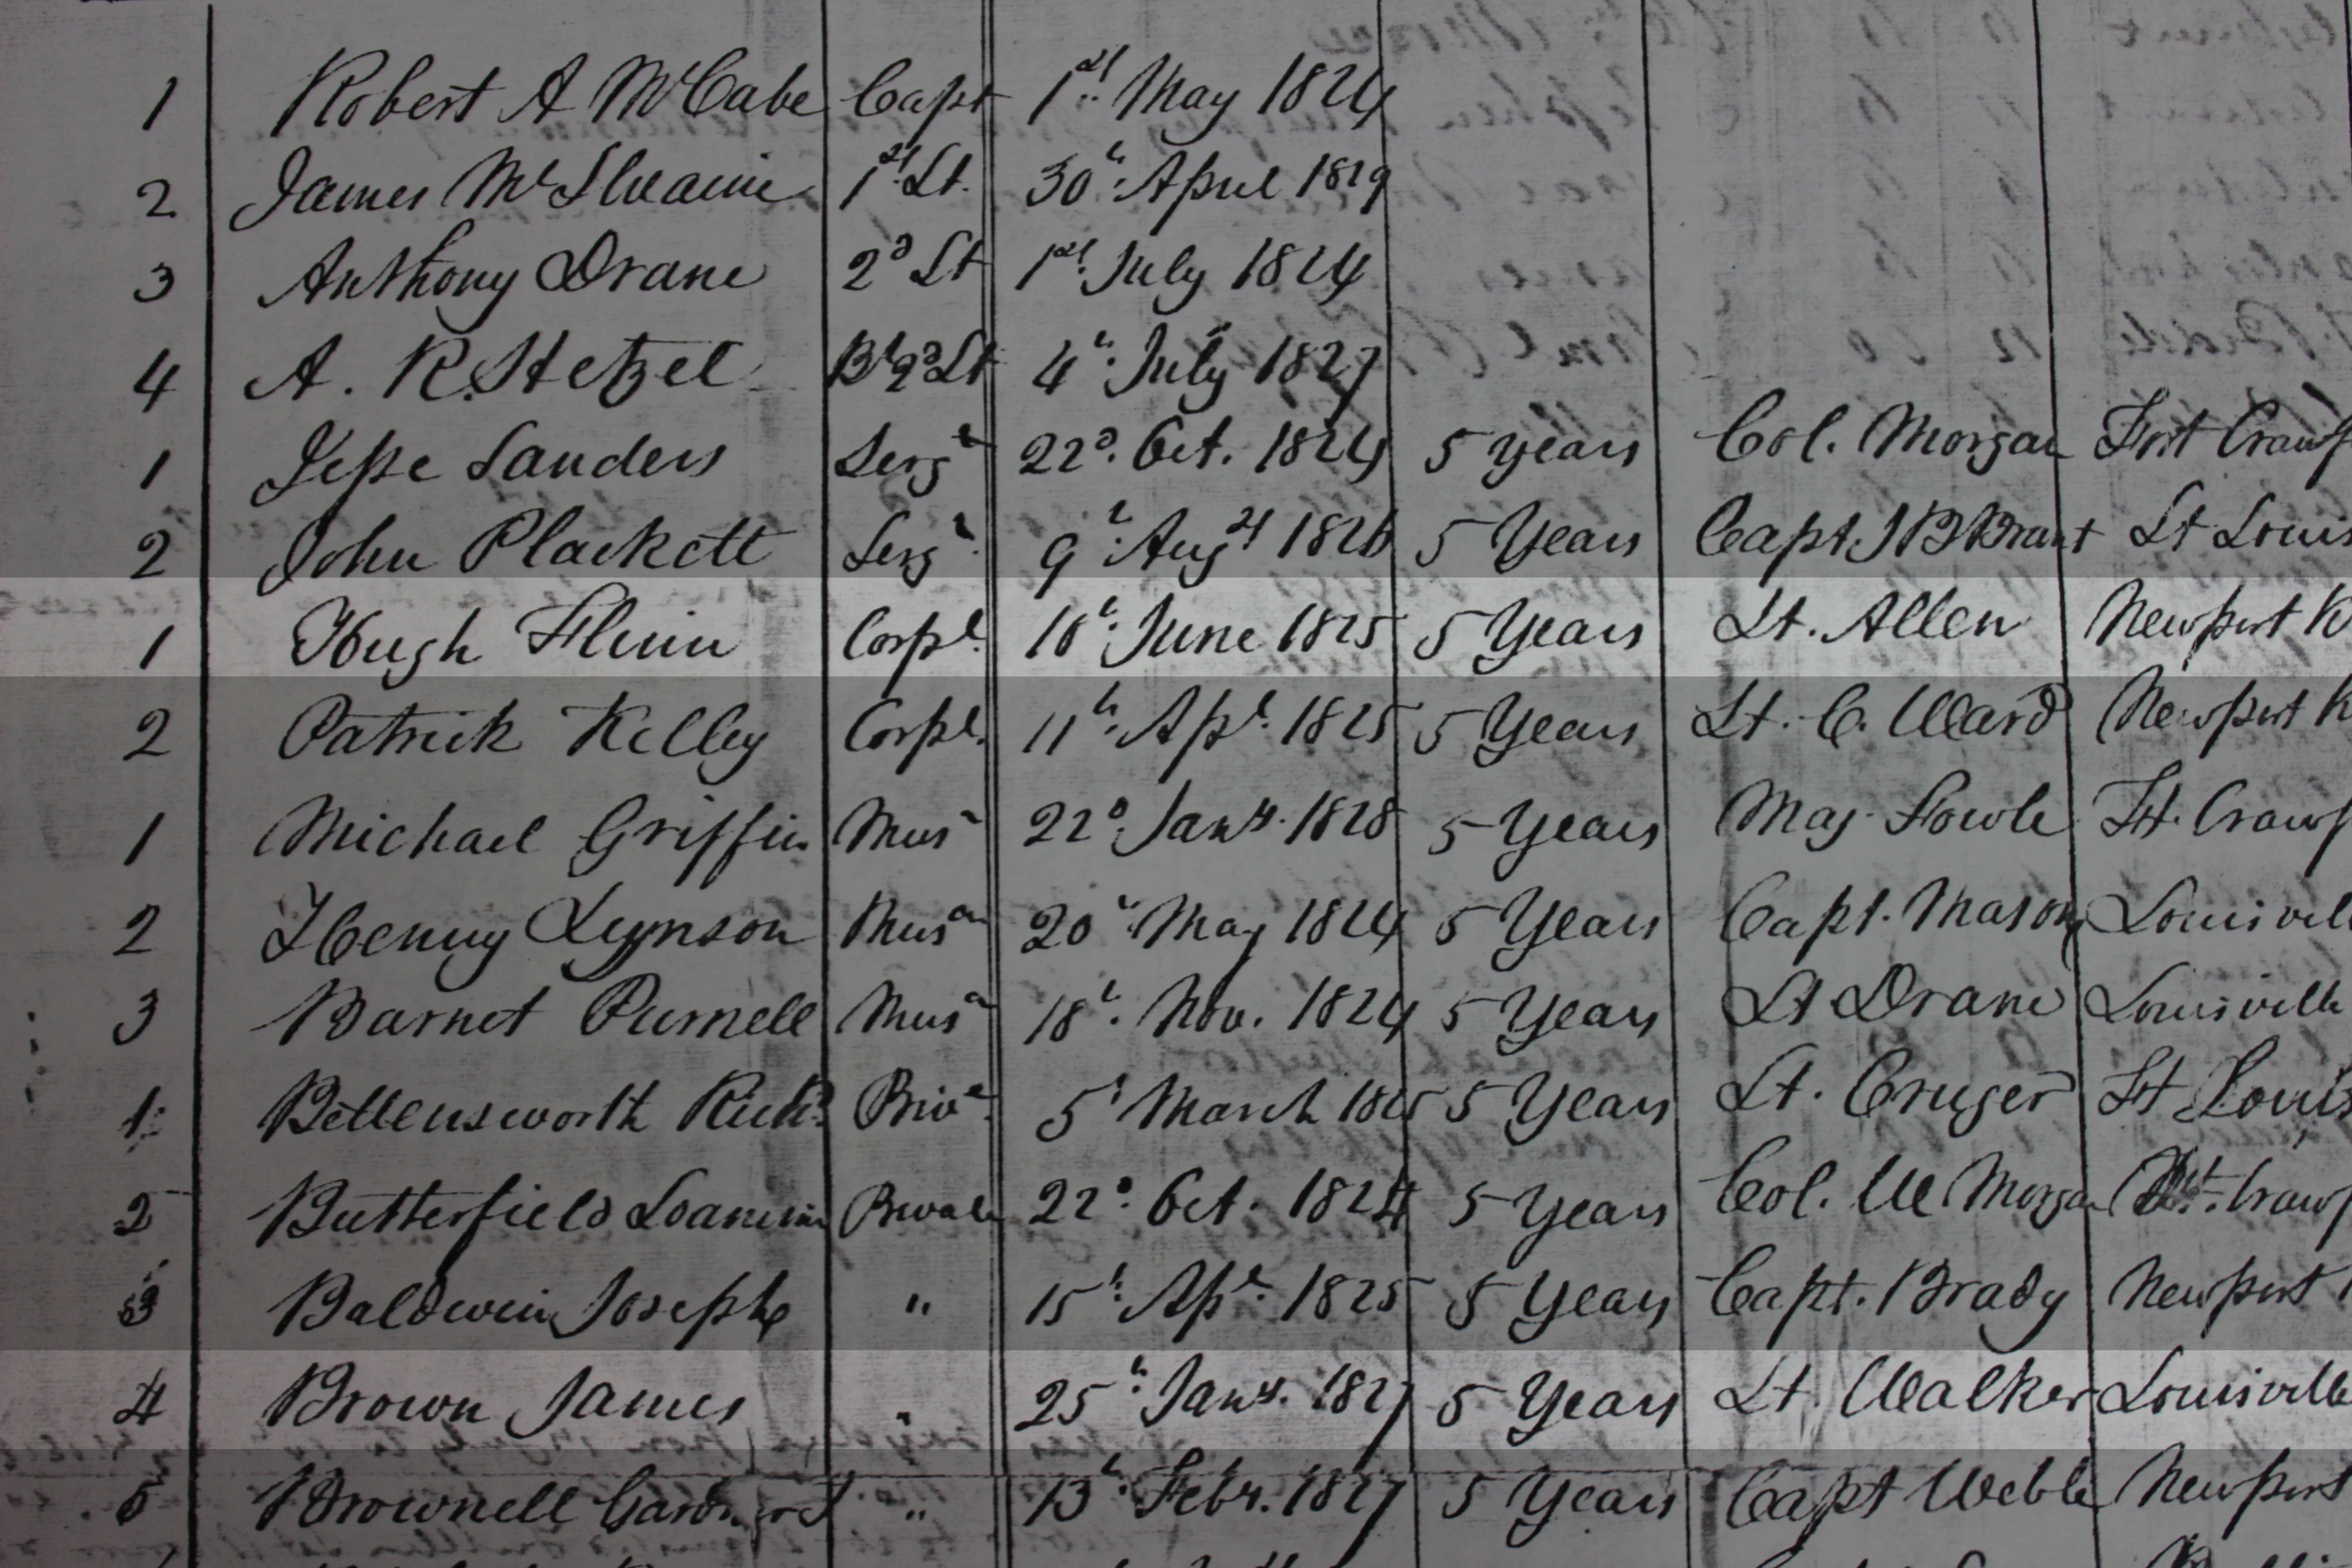 1 Robert A McCabe Capt 1st May 1824
2 James McIlvaine 1st Lt. 30th April 1819
3 Anthony Drane 2d Lt 1st July 1824
4 A. R. Hetzel Bt 2d Lt 4th July 1827
1 Jesse Sanders Sergt 22d Oct. 1824 5 years Col. Morgan Fort Crawf
2 John Plackett Sergt 9th Augst 1826 5 Years Capt. J B Brant St Louis
1 Hugh Flinn Corpl. 16th June 1825 5 Years Lt. Allen Newport K
2 Patrick Kelley Corpl. 11th Apl. 1825 5 Years Lt. C. Ward Newport K
1 Michael Griffin Musn 22d Jany. 1828 5 Years Maj. Fowle Ft. Crawf
2 Henry Lynson Musn 20th May 1824 5 Years Capt. Mason Louisvill
3 Barnet Purnell Musn 18th Nov. 1824 5 Years Lt Drane Louisville
1 Bettensworth Richd Prive. 5th March 1825 5 Years Lt. Cruger St Louis
2 Butterfield Private 22d Oct. 1824 5 Years Col. W Morgan Ft. Crawf
3 Baldwin Joseph " 15th Apl. 1825 5 Years Capt. Brady Newport
4 Brown James " 25th Jany. 1827 5 Years Lt. Walker Louisville
5 Brownell Gardner " 13th Feby. 1827 5 Years Capt Webb Newport